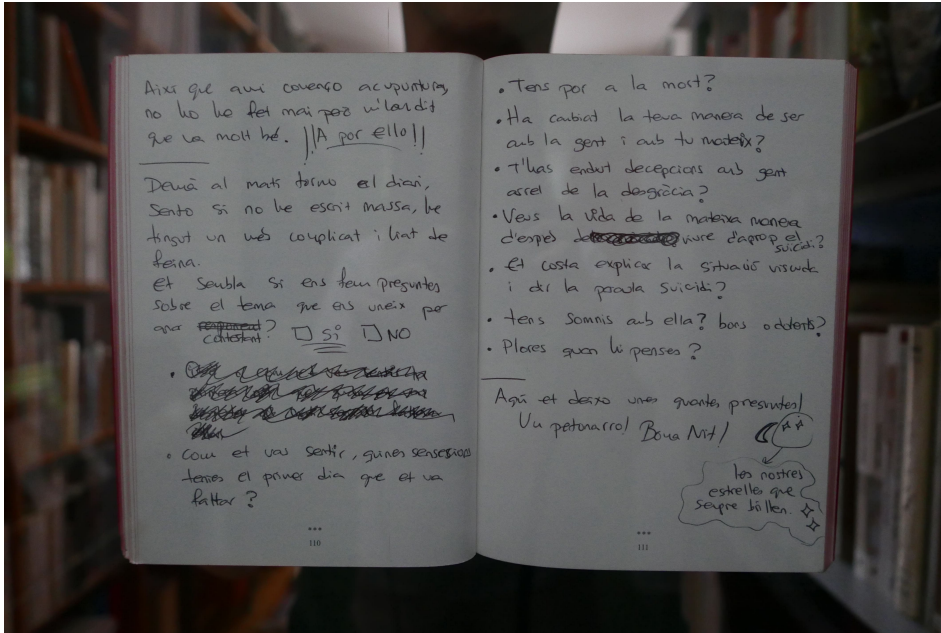 Així que avui començo acupuntura,
no ho he fet mai però m'han dit
que va molt bé. ¡¡A por ello!!
Demà al matí torno el diari,
sento si no he escrit massa, he
tingut un més complicat i liat de
feina.
et sembla si ens fem preguntes
sobre el tema que ens uneix per
anar contestant? SÍ NO
• Com et vas sentir, quines sensacions
tenies el primer dia que et va
faltar?
110
• Tens por a la mort?
• Ha canviat la teva manera de ser
amb la gent i amb tu mateix?
• T'has endut decepcions amb gent
arrel de la desgràcia?
• Veus la vida de la mateixa manera
d'espés de viure d'aprop el
suicidi?
• et costa explicar la situació viscuda
i dir la paraula suicidi?
• tens somnis amb ella? bons o dolents?
• Plores quan hi penses?
Aquí et deixo unes quantes preguntes!
Un petonarro! Bona Nit!
les nostres
estrelles que
sempre brillen.
111